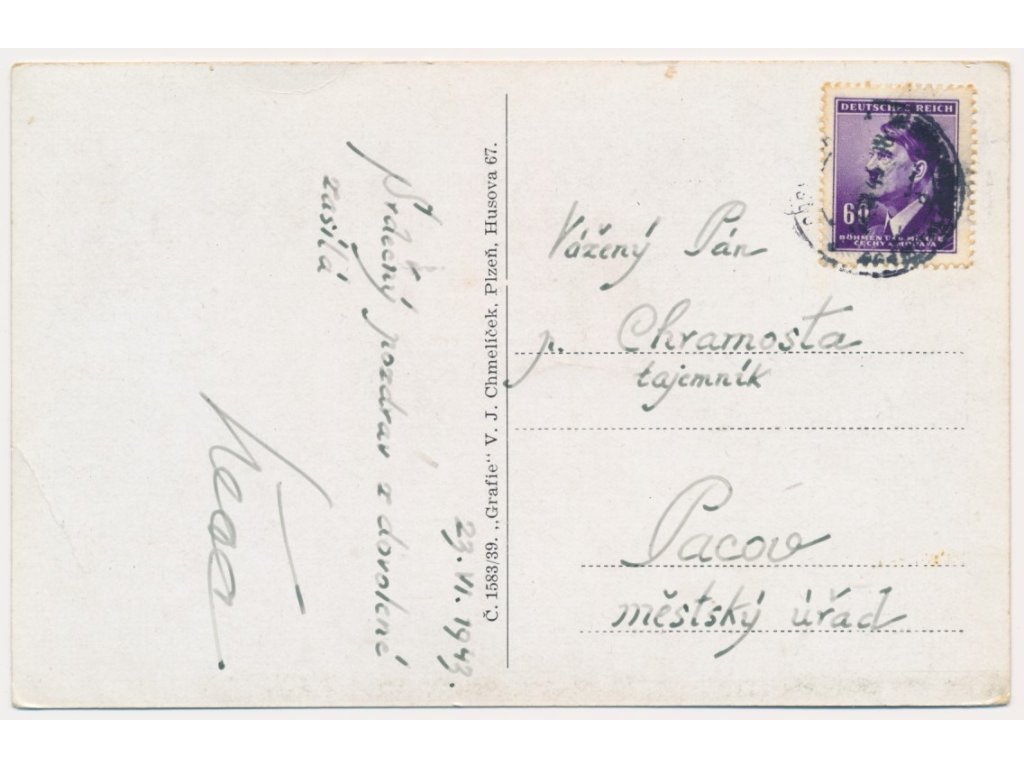 23. VI. 1943.
Srdečný pozdrav z dovolené
zasílá
Č. 1583/39. „Grafie“ V. J. Chmelíček, Plzeň, Husova 67.
DEUTSCHES REICH
60
BÖHMEN UND MÄHREN
ČECHY A MORAVA
Vážený Pán
p. Chramosta
tajemník
Pacov
městský úřad